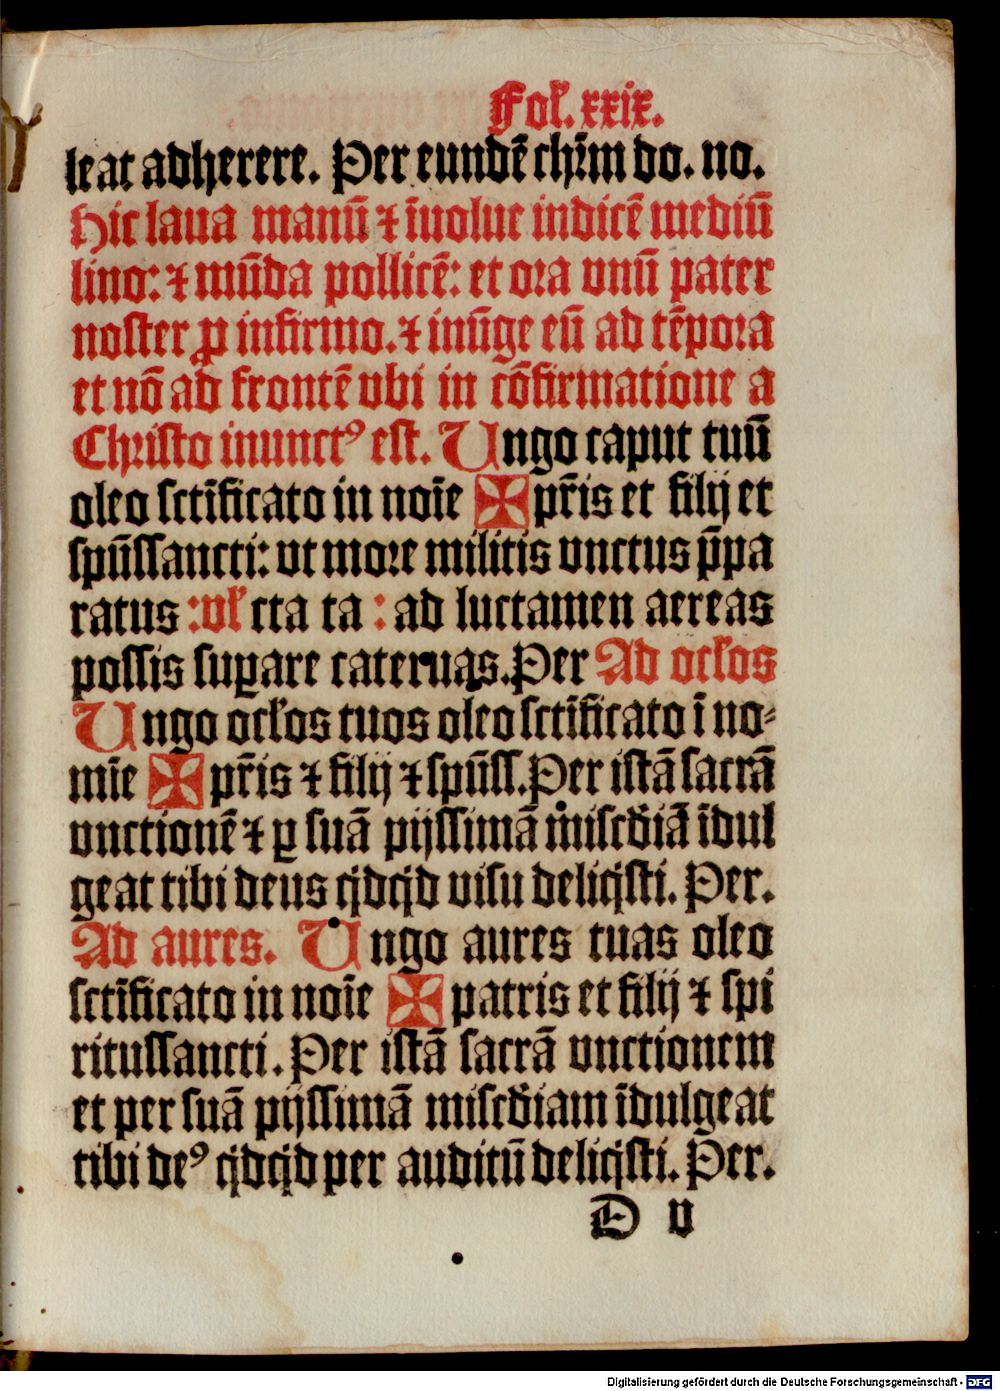 Fol. xxix.
leat adherere. Per eundē chr̄m do. no.
Hic laua manū ⁊ īuolue indicē mediū
lino: ⁊ mūda pollicē: et ora vnū pater
noster ꝓ infirmo. ⁊ inūge eū ad tēpora
et nō ad frontē vbi in cōfirmatione a
Christo inunctꝰ est. Ungo caput tuū
oleo sctīficato in noīe ✠ pr̄is et filij et
spūssancti: vt more militis vnctus p̄pa
ratus : vł cta ta : ad luctamen aereas
possis suꝑare cateruas. Per Ad ocłos
Ungo ocłos tuos oleo sctīficato ī no⸗
mīe ✠ pr̄is ⁊ filij ⁊ spūss. Per istā sacrā
vnctionē ⁊ ꝑ suā pijssimā misc̄diā īdul
geat tibi deus qͥdqͥd visu deliqͥsti. Per.
Ad aures. Ungo aures tuas oleo
sctīficato in noīe ✠ patris et filij ⁊ spi
ritussancti. Per istā sacrā vnctionem
et per suā pijssimā misc̄diam īdulgeat
tibi deꝰ qͥdqͥd per auditū deliqͥsti. Per.
D v
Digitalisierung gefördert durch die Deutsche Forschungsgemeinschaft - DFG